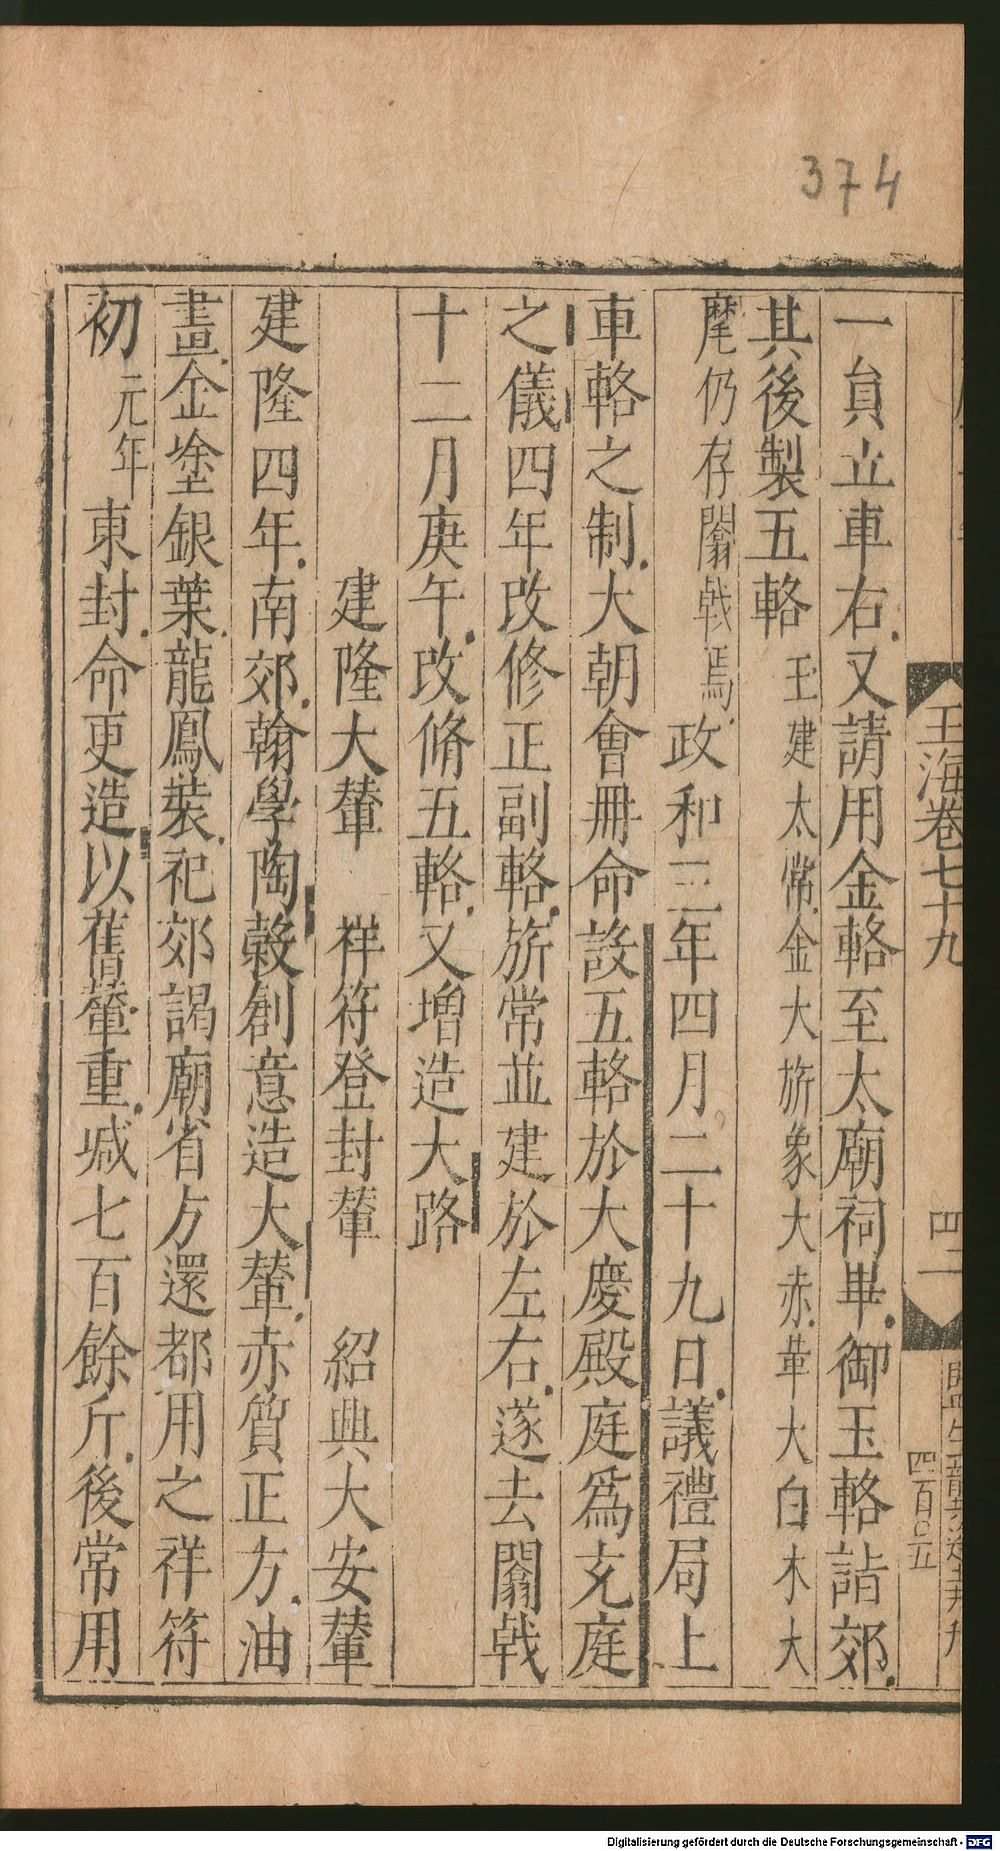 374
玉海卷七十九
四二
四百〇五
一員立車右又請用金輅至太廟祠畢御玉輅詣郊
其後製五輅玉建太常金大旂象大赤革大白木大
麾仍存闟戟焉政和三年四月二十九日議禮局上
車輅之制大朝會冊命設五輅於大慶殿庭爲充庭
之儀四年改修正副輅旂常並建於左右遂去闟戟
十二月庚午改脩五輅又增造大路
建隆大輦　祥符登封輦　紹興大安輦
建隆四年南郊翰學陶縠創意造大輦赤質正方油
畫金塗銀葉龍鳳裝祀郊謁廟省方還都用之祥符
初元年東封命更造以舊輦重減七百餘斤後常用
Digitalisierung gefördert durch die Deutsche Forschungsgemeinschaft - DFG